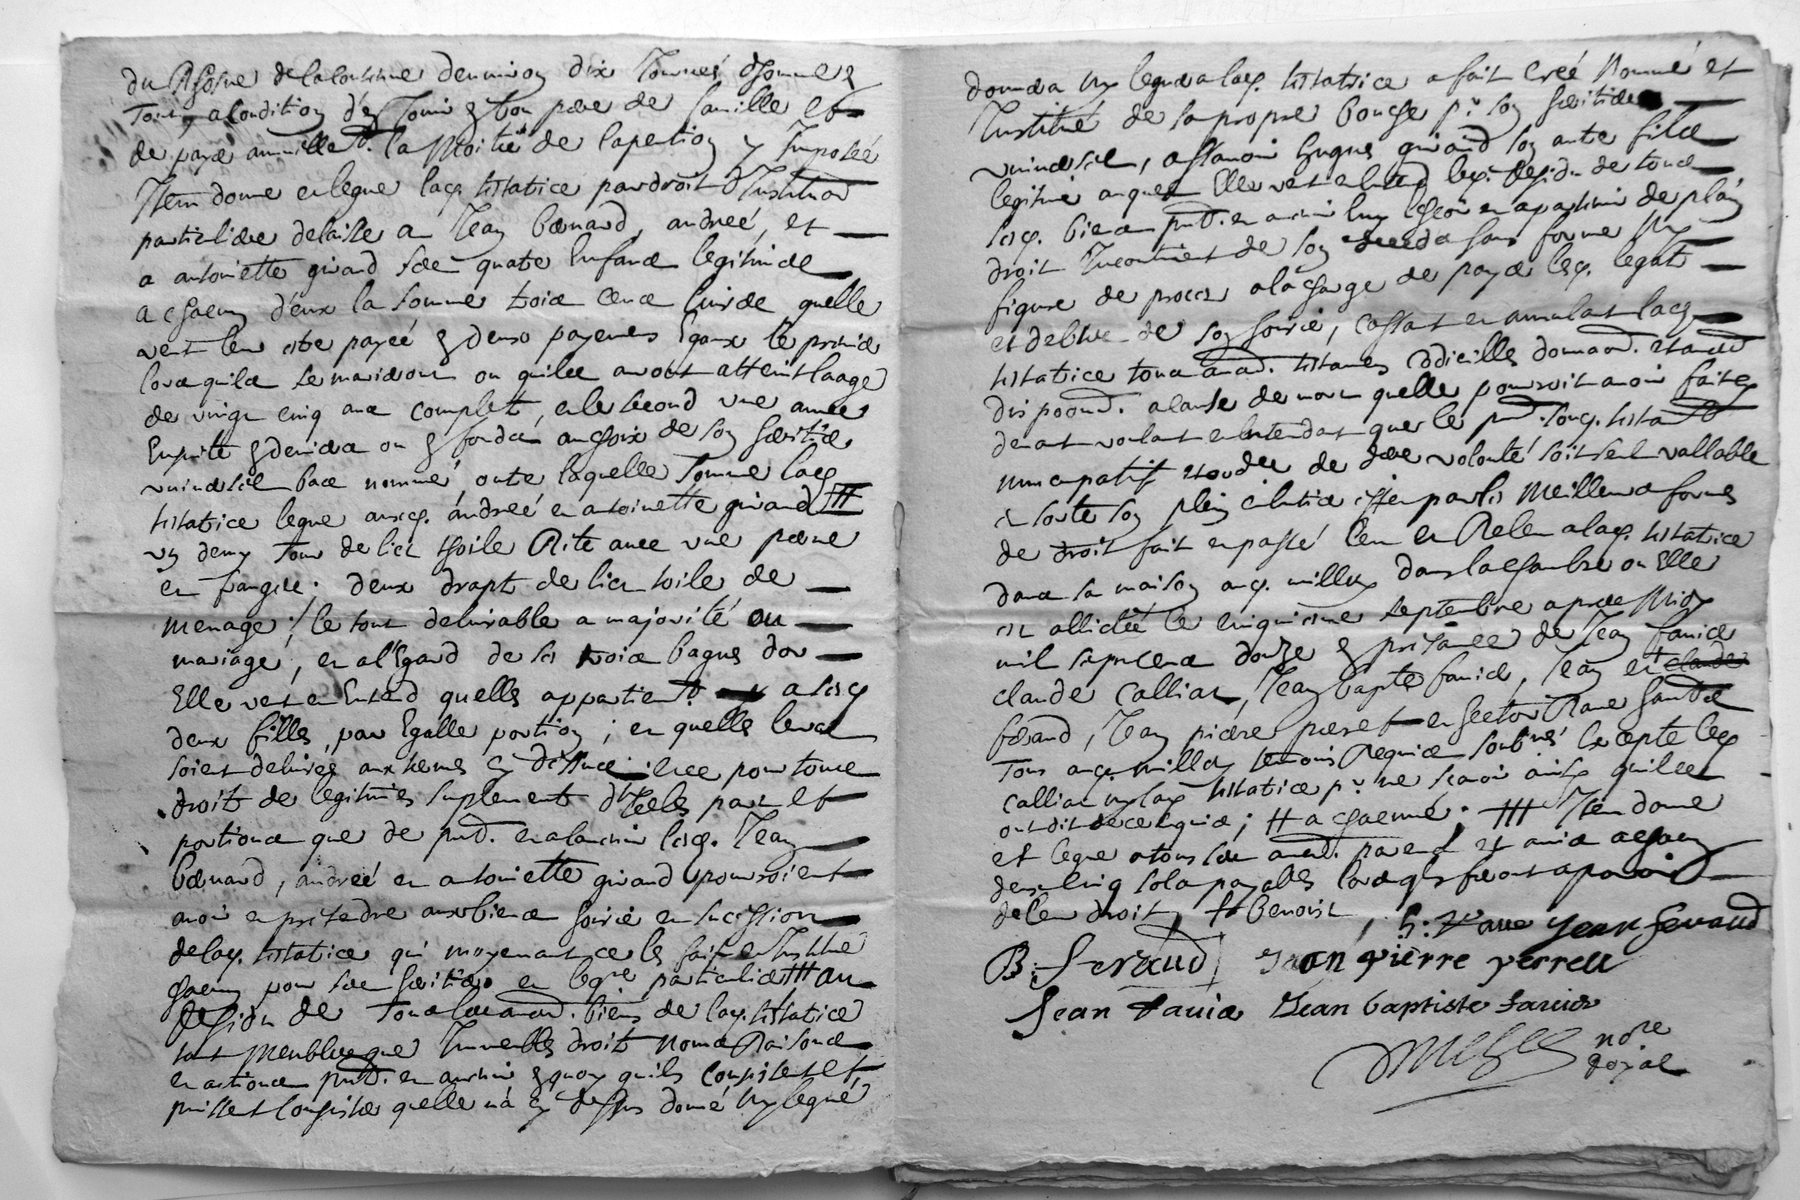 du de la contenue d'environ dix journés d'hommes
tout a condition d'en jouir en bon pere de famille et
de payer annuellet. la moitie de la pention y imposée
Item donne et legue lad. testatrice par droit d'institu'on
particuliere delaisse a Jean bernard, andreé, et
a antoinette girard ses quatre enfans legitimes
a chacun d'eux la somme trois cens livres quelle
veut leur estre payeé en deux payemens Egaux le premier
lors quils se marieront ou quils auront atteint laage
de vingt cinq ans complet, et le second une année
Ensuitte en deniers ou en fonds au choix de son heritier
universel bas nommé, outre laquelle somme lad.
testatrice legue ausd. andreé et antoinette girard #
un demy tour de lict thoile Rite avec une
en frangee; deux drapt de lict toile de
menage; le tout delivrable a majorité ou
mariage, et a l'Egard de ses trois bagues d'or
Elle veut et Entend quelles appartienent a sesd.
deux filles, par Egalle portion; et quelles leur
soient delivreés aux termes cy dessus; et ce pour tous
droit de legitimes suplement d'icelles part et
portions que de pnt. et a lavenir lesd. Jean
bernard, andreé et antoinette girard pourroient
avoir et pretendre aux biens hoirie et succession
de lad. testatrice qui moyenant ce les fait et Institue
chacun pour ses heritiers et particuliers # au
Residu de tous biens de lad. testatrice
tant meubles que Immeubles droit noms Raisons
et actions pnt. et avenir en quoy quils consistent et
puissent consister quelle n'a cy dessus donné ny legué
donnera ny leguera lad. testatrice a fait creé nommé et
Institué de sa propre bouche pr. son heritier
universel, assavoir hugues girard son autre fils
legitime auquel Elle veut et entend led. Residu de tous
sesd. biens pnt. et avenir luy escheoir et apartenir de plain
droit Incontinent de son deceds sans forme ny
figure de procez a la charge de payer lesd. legats
et debtes de son hoirie, cassant et annulant lad.
testatrice tous testamens codicilles donnaons. et autres
dispoons. a cause de mort quelle pourroit avoir faites
devant voulant et entendant que le pnt. sond. testamt.
nuncupatif et ordre de derre volonté soit seul vallable
et sorte son plein et entier effet par les meilleures formes
de droit fait et passé leu et Releu a lad. testatrice
dans sa maison aud. millery dans la chambre ou Elle
est allictée le cinquiesme septembre apres midy
mil sept cens douze en presance de Jean favier
claude calliat, Jean bapte. favier, Jean et claude
feraud, Jean pierre perret et hector Rave
tous aud. millery temoins Requis soubsnés. Excepté led.
calliat ny lad. testatrice pr. ne scavoir ainsy quils
ont dit de ce Requis; # a chacune; ## Item donne
et legue a tous ses parens et amis a chacun
deux cinq sols payables lors qu'ils feront aparoir
de leur droit # benoist
h: Rave jean feraud
B: feraud Jean pierre perret
Jean favier Jean baptiste favier
nore
Royal